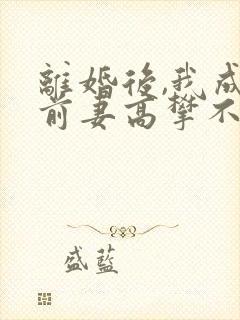 離婚後,我成
前妻高攀不
盛藍